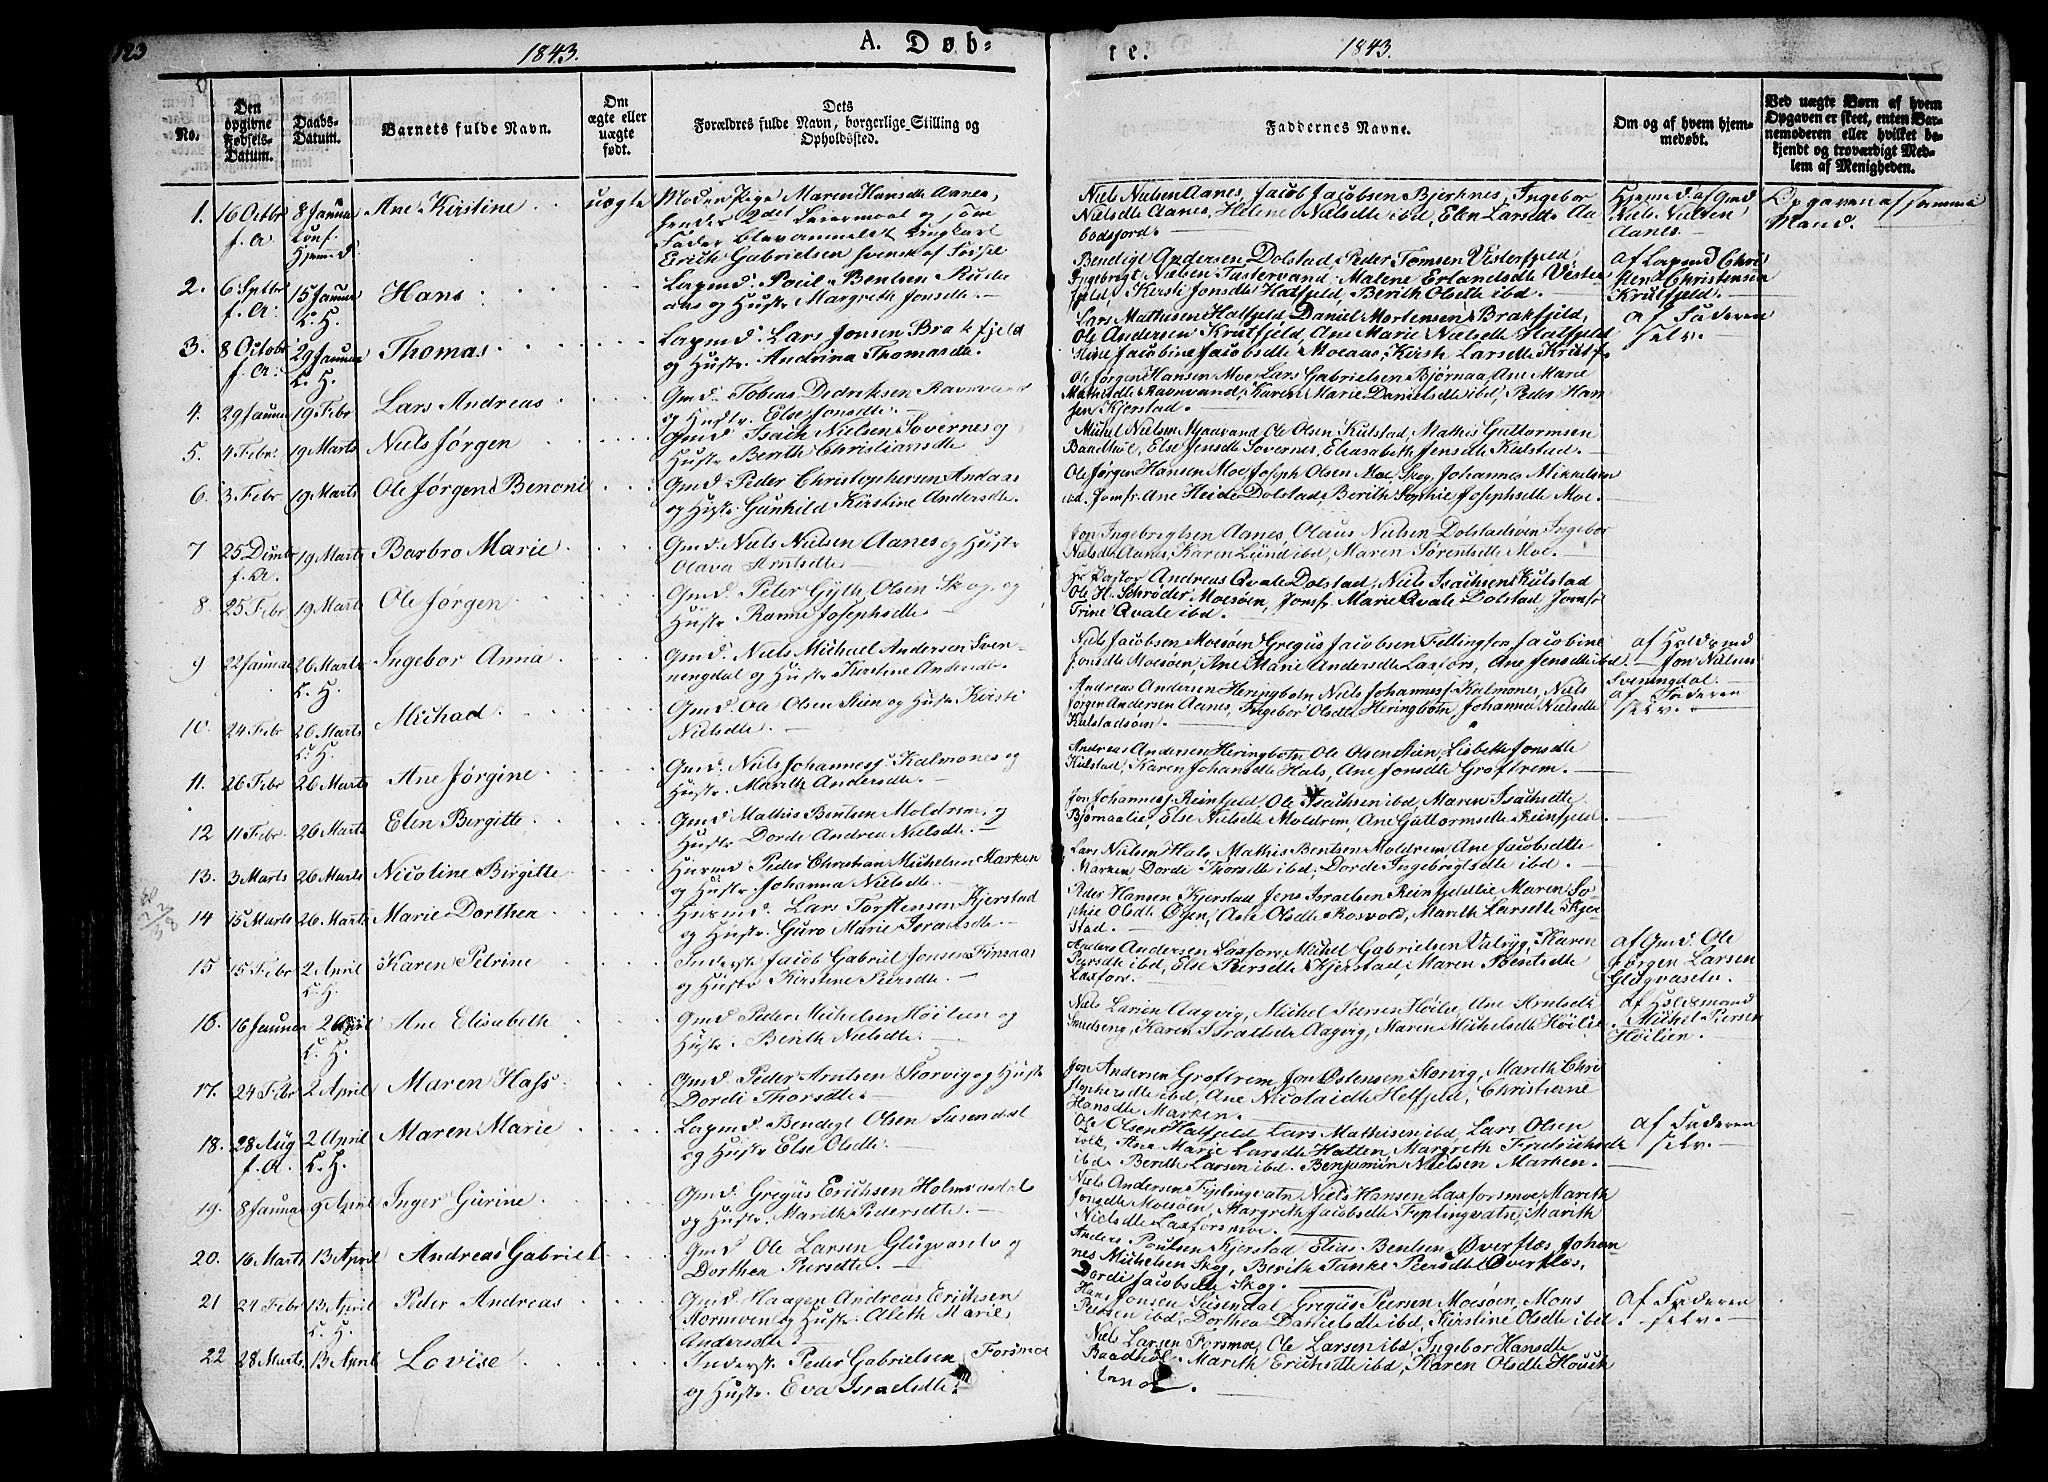 123
1843.
A. Døb=
te.
1843.
No.
Den opgivne Fødsels-Datum.
Daabs-Datum.
Barnets fulde Navn.
Om ægte eller uægte født.
Dets Forældres fulde Navn, borgerlige Stilling og Opholdssted.
Faddernes Navne.
Om og af hvem hjemmedøbt.
Ved uægte Børn af hvem Opgaven er skeet, enten Barnemoderen eller hvilket bekjendt og troværdigt Medlem af Menigheden.
1. 16 Octbr f. A. 8 Januar Conf. Hjemmed. Ane Kirstine uægte
Moder Pige Maren Hansdtr Aanes,
hendes 2det Leiermaal og som
Fader blev anmeldt Ungkarl
Erich Gabrielsen
Niels Nielsen Aanes, Jacob Jacobsen Bjerknes, Ingebor
Nielsdtr Aanes, Helene Nielsdtr ibd, Elen Larsdtr
Hjemmed. af Gmd
Niels Nielsen
Aanes.
Opgaven af samme
Mand.
2. 6 Septbr f. A. 15 Januar C. H. Hans
Lapmd. Poul Bentsen
og Hustr. Margreth Jonsdtr.
Bendigt Andersen Dolstad, Peder Tomsen Vesterfjeld,
Ingebrigt Nielsen Tustervand, Malene Erlandsdtr Vester
fjeld, Kirsti Jonsdtr Hatfjeld, Berith Olsdtr ibd.
af Lapmd Chri
sten Christensen
Krutfjeld.
3. 8 Octobr f. A. 29 Januar C. H. Thomas
Lapmd. Lars Jonsen Brakfjeld
og Hustr. Andrina Thomasdtr.
Lars Mathisen Hatfjeld, Daniel Mortensen Brakfjeld,
Ole Andersen Krutfjeld, Ane Marie Nielsdtr Hatfjeld
Stine Jacobine Jacobsdtr Moeaas, Kirsti Larsdtr Krutf.
af Faderen
selv.
4. 29 Januar 19 Febr Lars Andreas
Gmd. Tobias Didriksen Ravnvand
og Hustr. Else Jonsdtr.
Ole Jørgen Hansen Moe, Lars Gabrielsen Bjørnaa, Ane Marie
Mathisdtr Ravnvand, Karen Marie Danielsdtr ibd, Peder Han
sen Kjerstad.
5. 4 Febr. 19 Marts Niels Jørgen
Gmd Isach Nielsen Sovernes og
Hustr Berith Christiansdtr
Michel Nielsen Mjaavand, Ole Olsen Kulstad, Mathis Guttormsen
Baadhøl, Else Jensdtr Sovernes, Elisabeth Jensdtr Kulstad.
6. 3 Febr 19 Marts Ole Jørgen Benoni
Gmd. Peder Christophersen Andaas
og Hustr. Gunhild Kirstine Andersdtr.
Ole Jørgen Hansen Moe, Joseph Olsen Moe Skog, Johannes Mikkelsen
ibd, Jomfr. Ane Heide Dolstad, Berith Sophie Josephsdtr Moe.
7 25 Dcmbr f. A. 19 Marts Barbro Marie
Gmd. Niels Nielsen Aanes og Hustr
Olava Arntsdtr
Jon Ingebrigtsen Aanes, Olaus Nielsen Dolstadsøen, Ingebor
Nielsdtr Aanes, Karen Lund ibd, Maren Sørensdtr Moe.
8. 25 Febr 19 Marts Ole Jørgen
Gmd. Peter Gyth Olsen Skog, og
Hustr Ranni Josephsdtr
Hr Pastor Andreas Qvale Dolstad, Niels Isachsen Kulstad
Ole H. Schrøder Moesøen, Jomfr. Marie Qvale Dolstad, Jomfr
Trine Qvale ibd.
9 22 Januar 26 Marts C. H. Ingebor Anna
Gmd. Niels Michael Andersen Sven-
nengdal og Hustr Kirstine Andersdtr
Niels Jacobsen Moesøen, Gregus Jacobsen Fellingfor, Jacobine
Jonsdtr Moesøen, Ane Marie Andersdtr Laxfors, Ane Jensdtr ibd.
af Holdsmd
Jon Nielsen
Sveningdal.
10. 24 Febr 26 Marts C. H. Michael
Gmd. Ole Olsen Stien og Hustr Kirsti
Nielsdtr.
Andreas Andersen Heringbotn, Niels Johannesf. Kalmones, Niels
Jørgen Andersen Aanes, Ingebor Olsdtr Heringbotn, Johanna Nielsdtr
Kulstadsøen.
af Faderen
selv.
11. 26 Febr 26 Marts Ane Jørgine
Gmd. Niels Johannesf. Kalmones og
Hustr. Marith Andersdtr.
Andreas Andersen Heringbotn, Ole Olsen Stien, Lisbeth Jonsdtr
Kulstad, Karen Johansdtr Hals, Ane Jonsdtr Groftrem.
12 11 Febr 26 Marts Elen Birgitte
Gmd. Mathis Bentsen Moldrem, og
Hustr Dorde Andrea Nielsdtr.
Jon Johannesf. Reinfjeld, Ole Isachsen ibd, Maren Isachsdtr
Bjørnaalie, Else Nielsdtr Moldrem, Ane Guttormsdtr Reinfjeld.
13. 3 Marts 26 Marts Nicoline Birgitte
Husmd Peder Christian Michelsen Marken
og Hustr. Johanna Nielsdtr.
Lars Nielsen Hals, Mathis Bentsen Moldrem, Ane Jacobsdtr
Marken, Dorde Thorsdtr ibd, Dorde Ingebrigtsdtr ibd.
14 15 Marts 26 Marts Marie Dorthea
Husmd. Lars Torstensen Kjerstad
og Hustr. Guro Marie Israelsdtr.
Peder Hansen Kjerstad, Jens Israelsen Reinfjeldlie, Maren So-
phie Olsdtr Øien, Ane Olsdtr Rosvold, Marith Larsdtr Kjer-
stad.
15 15 Febr 2 April C. H. Karen Petrine
Inderst. Jacob Gabriel Jonsen Finsaas
og Hustr Kirstine Persdtr
Anders Andersen Laxfors, Michel Gabrielsen Valryg, Karen
Persdtr ibd, Else Persdtr Kjerstad, Maren Bentsdtr
Laxfors.
af Gmd. Ole
Jørgen Larsen
Glugvaselv.
16. 16 Januar 2 April C. H. Ane Elisabeth
Gmd. Peder Michelsen Høilien og
Hustr. Berith Nielsdtr.
Niels Larsen Aagvig, Michel Persen Høilie, Ane Arntsdtr
Smedseng, Karen Israelsdtr Aagvig, Maren Michelsdtr Høilie
af Holdsmand
Michel Persen
Høilien.
17. 24 Febr 2 April Maren Hass
Gmd. Peder Arntsen Storvig og Hustr
Dordi Thorsdtr.
Jon Andersen Groftrem, Jon Østensen Storvig, Mareth Chri
stophersdtr ibd, Ane Nicolaidtr Helfjeld, Christierne
Hansdtr Marken.
18. 28 Aug f. A. 2 April C. H. Maren Marie
Lapmd Bendigt Olsen Susendal
og Hustr Else Olsdtr.
Ole Olsen Hatfjeld, Lars Mathisen ibd, Lars Olsen
Ane Marie Larsdtr Hatten, Margreth Fredrichsdtr
ibd. Berith Larsen ibd. Benjamin Nielsen Marken.
af Faderen
selv.
19. 8 Januar 9 April Inger Gurine
Gmd. Gregus Erichsen Holmvasdal
og Hustr. Marith Pedersdtr.
Niels Andersen Fiplingvatn, Niels Hansen Laxforsmoe, Marith
Jonsdtr Moesøen, Margreth Jacobsdtr Fiplingvatn, Marith
Nielsdtr Laxforsmoe.
20. 16 Marts 13 April Andreas Gabriel
Gmd Ole Larsen Glugvaselv og
Dorthea Persdtr.
Anders Poulsen Kjerstad, Elias Bentsen Øverflos, Johan
nes Michelsen Skog, Berith Tanke Persdtr Øverflos,
Dordi Jacobsdtr Skog.
21 24 Febr 13 April C. H. Peder Andreas
Gmd Haagen Andreas Erichsen
Stormoen og Hustr. Aleth Marie
Andersdtr.
Hans Jonsen Susendal, Gregus Persen Moesøen, Mons
Persen ibd, Dorthea Danielsdtr ibd, Kirstine Olsdtr ibd.
af Faderen
selv.
22 28 Marts 13 April Lovise
Inderst. Peder Gabrielsen Forsmoe
og Hustr. Eva Israelsdtr.
Niels Larsen Forsmoe, Ole Larsen ibd, Ingebor Hansdtr
Baadhøl, Marith Erichsdtr ibd, Karen Olsdtr